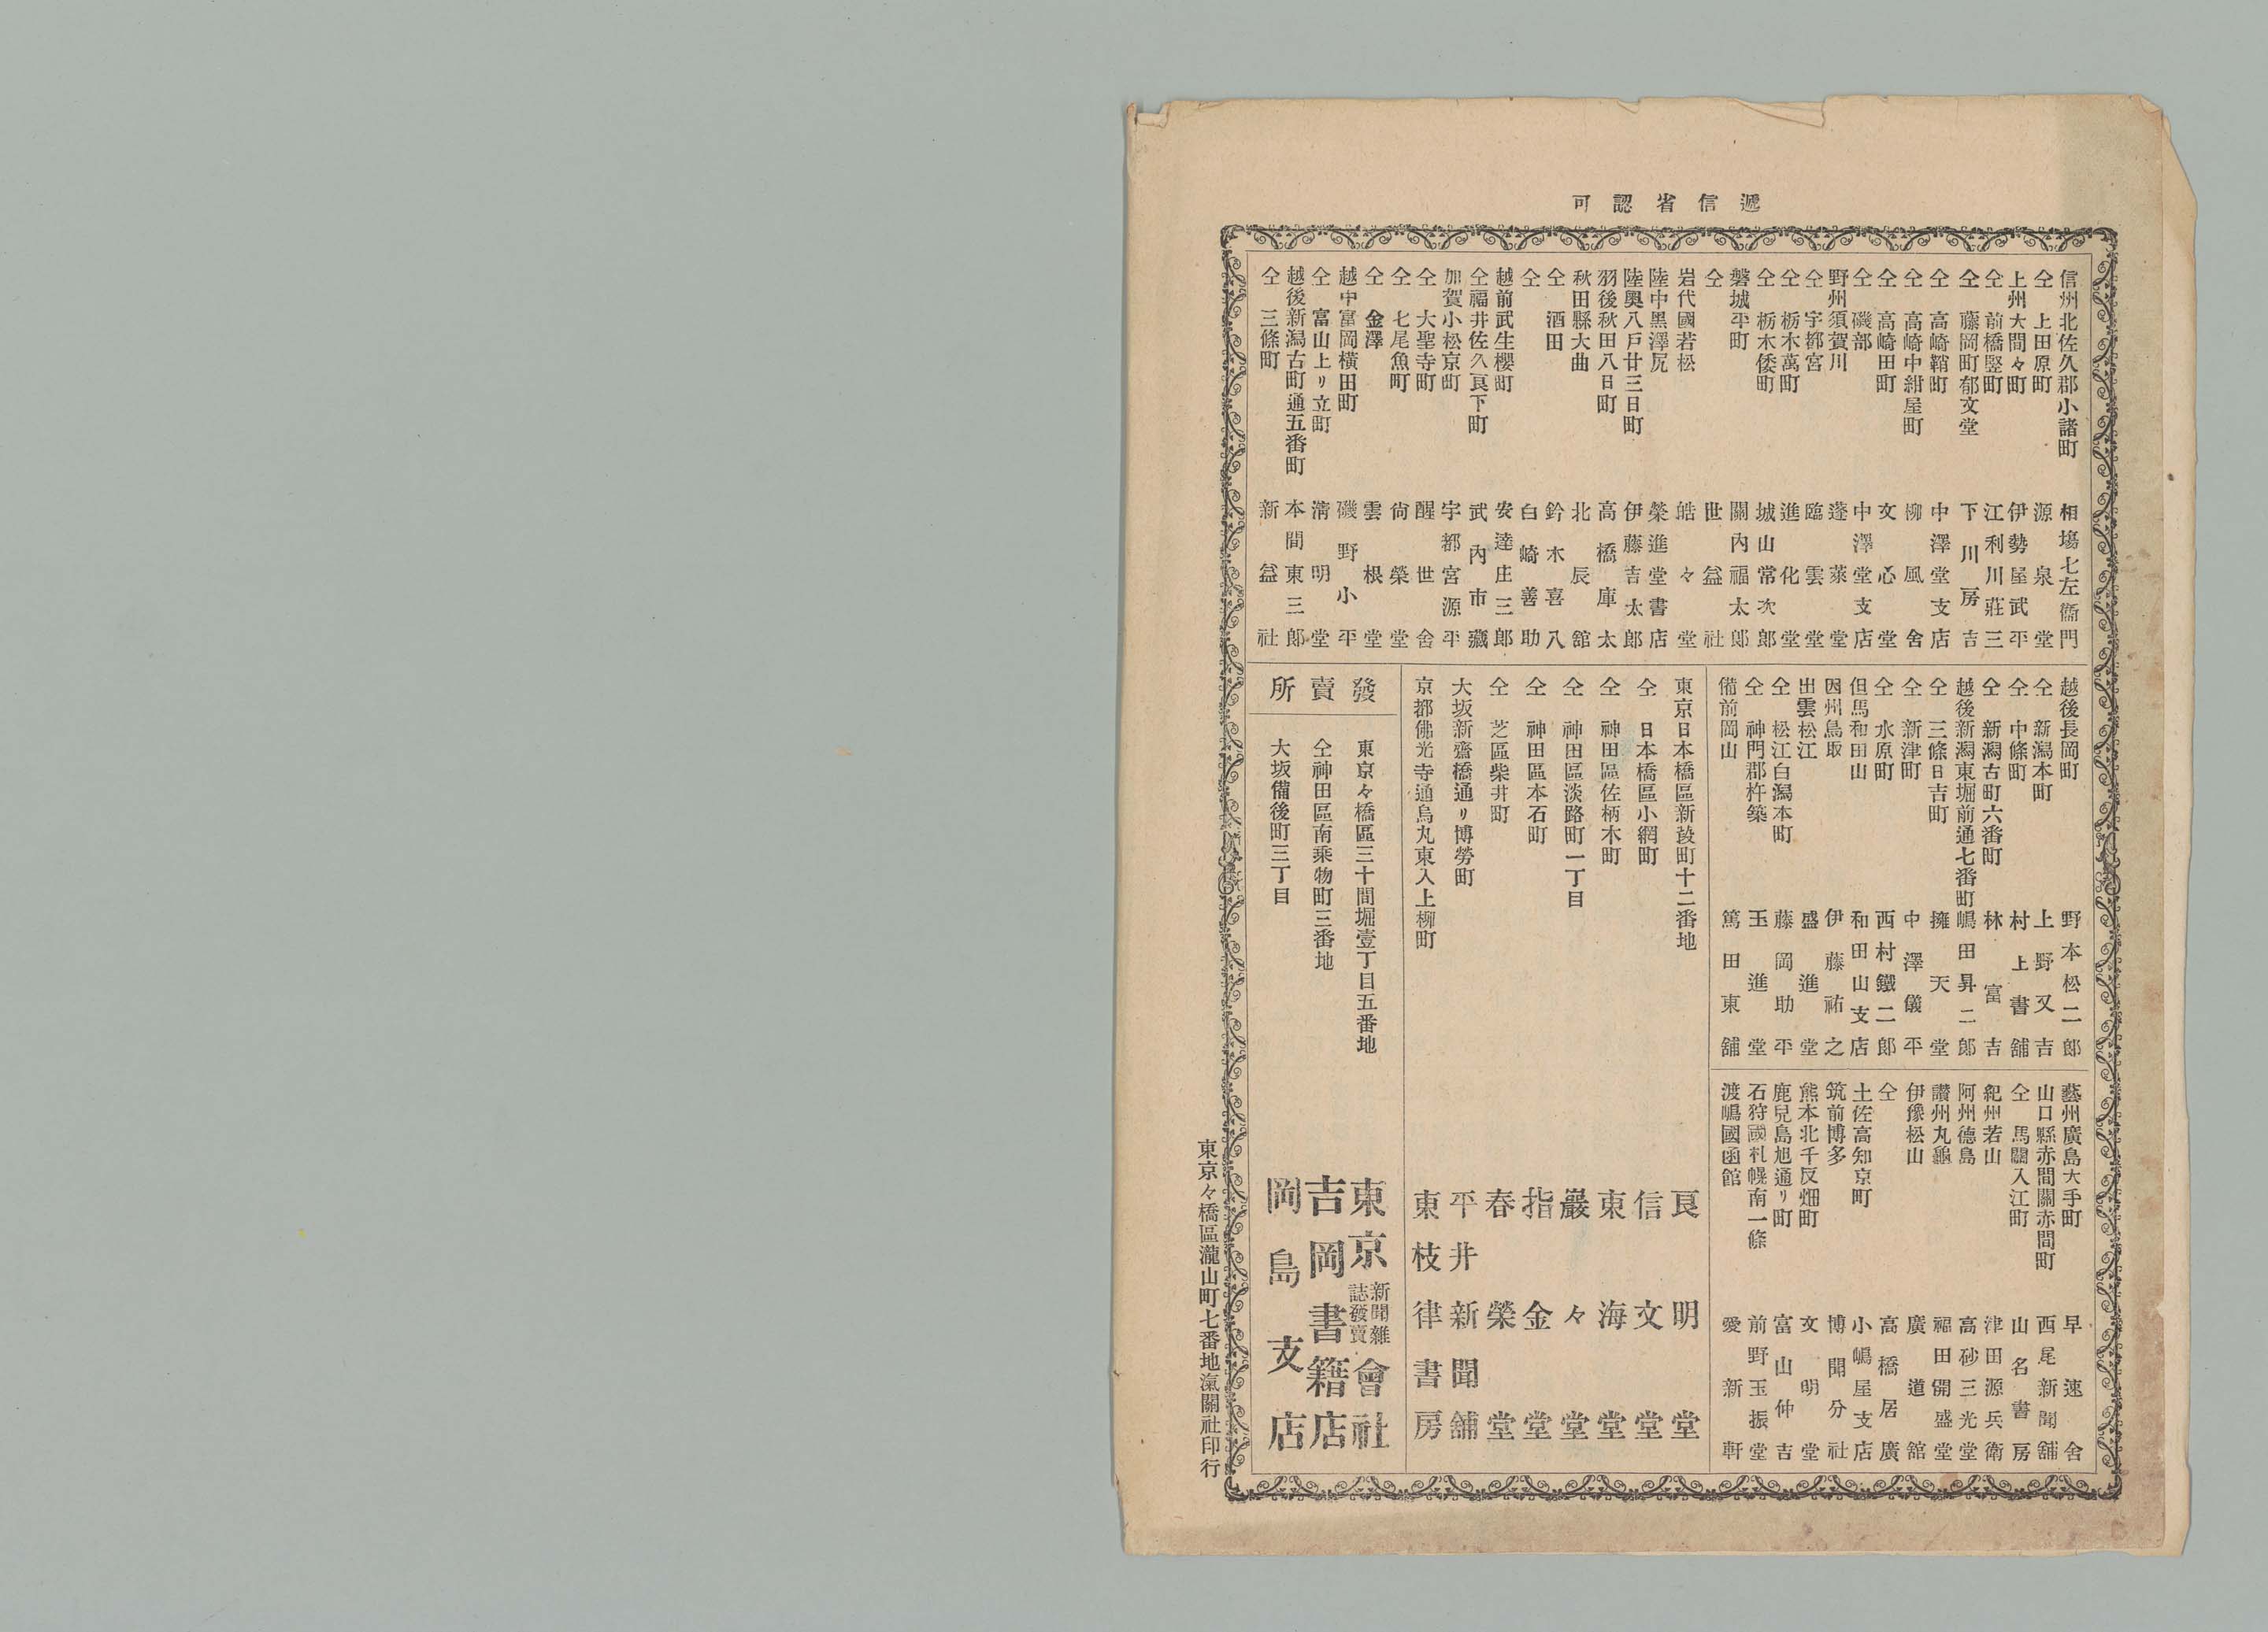 遞信省認可
信州北佐久郡小諸町 相塲七左衞門
仝 上田原町 源泉堂
上州大間々町 伊勢屋武平
仝 前橋竪町 江利川莊三
仝 藤岡町郁文堂 下川房吉
仝 高崎鞘町 中澤堂支店
仝 高崎中紺屋町 柳風舍
仝 高崎田町 文心堂
仝 磯部 中澤堂支店
野州須賀川 蓬萊堂
仝 宇都宮 臨雲堂
仝 栃木萬町 進化堂
仝 栃木倭町 城山常次郎
磐城平町 關內福太郎
仝 世益社
岩代國若松 皓々堂
陸中黑澤尻 榮進堂書店
陸奧八戶廿三日町 伊藤吉太郎
羽後秋田八日町 高橋庫太
秋田縣大曲 北辰舘
仝 酒田 鈴木喜八
仝 白崎善助
越前武生櫻町 安達庄三郎
仝福井佐久良下町 武內市藏
加賀小松京町 宇都宮源平
仝 大聖寺町 醒世舍
仝 七尾魚町 尙榮堂
仝 金澤 雲根堂
越中富岡橫田町 磯野小平
仝 富山上リ立町 淸明堂
越後新潟古町通五番町 本間東三郎
仝 三條町 新益社
越後長岡町 野本松二郎
仝 新潟本町 上野又吉
仝 中條町 村上書舖
仝 新潟古町六番町 林富吉
越後新潟東堀前通七番町 嶋田昇二郎
仝 三條日吉町 擁天堂
仝 新津町 中澤儀平
仝 水原町 西村鐵二郎
但馬和田山 和田山支店
因州鳥取 伊藤祐之
出雲松江 盛進堂
仝 松江白潟本町 藤岡助平
仝 神門郡杵築 玉進堂
備前岡山 篤田東舖
藝州廣島大手町 早速舍
山口縣赤間關赤間町 西尾新聞舖
仝 馬關入江町 山名書房
紀州若山 津田源兵衛
阿州德島 高砂三光堂
讚州丸龜 福田開盛堂
伊豫松山 廣道舘
仝 高橋居廣
土佐高知京町 小嶋屋支店
筑前博多 博聞分社
熊本北千反畑町 文明堂
鹿兒島旭通リ町 富山仲吉
石狩國札幌南一條 前野玉振堂
渡嶋國函館 愛新軒
東京日本橋區新葭町十二番地 良明堂
仝 日本橋區小網町 信文堂
仝 神田區佐柄木町 東海堂
仝 神田區淡路町一丁目 巖々堂
仝 神田區本石町 指金堂
仝 芝區柴井町 春榮堂
大坂新齋橋通リ博勞町 平井新聞舖
京都佛光寺通烏丸東入上柳町 東枝律書房
發賣所
東京々橋區三十間堀壹丁目五番地 東京新聞雜誌發賣會社
仝神田區南乘物町三番地 吉岡書籍店
大坂備後町三丁目 岡島支店
東京々橋區瀧山町七番地滊關社印行